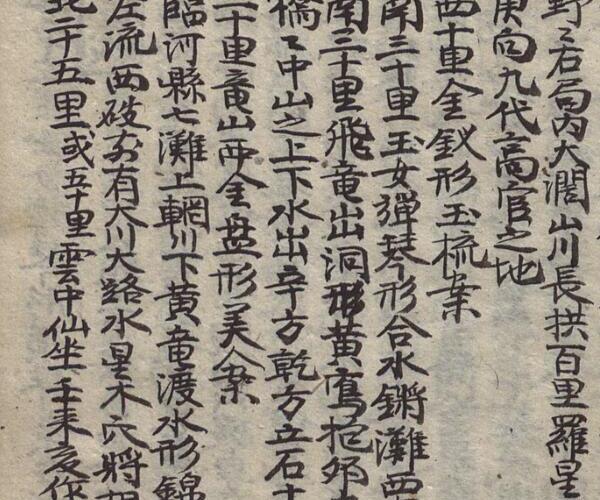 野〻右局内大濶山川長拱百里羅星
庚向九代高官之地
西十里金釵形玉梳案
南三十里玉女彈琴形合水鏘灘西
南三十里飛竜出洞形黄鷹抱卵
橋〻中山之上下水出辛方乾方立石
二十里竜山西金盤形美人案
臨河縣七灘上輞川下黄竜渡水形錦
左流西破前有大川大路水星木穴將
北二十五里或五十里雲中仙坐壬来亥作